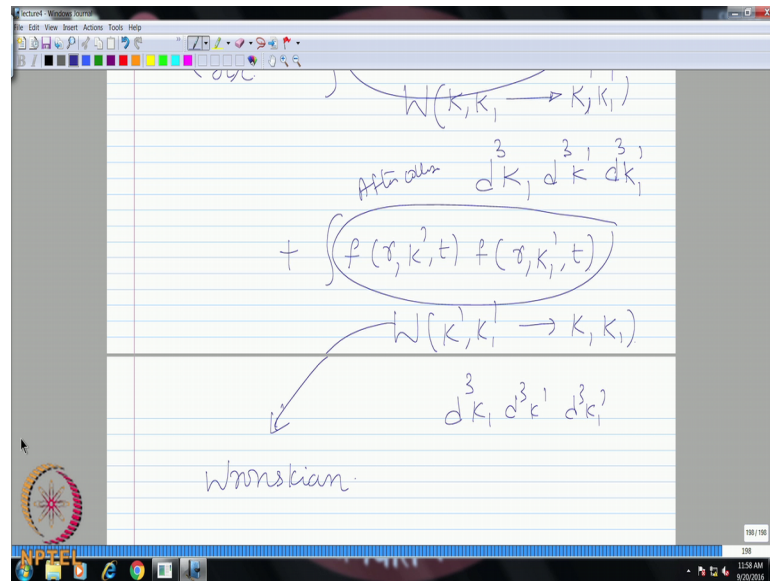 lecture4 - Windows Journal
File Edit View Insert Actions Tools Help
W(K, K₁ → K', K₁')
d³K₁ d³K' d³K₁'
+ ∫ f(r, K', t) f(r, K₁', t)
W(K', K₁' → K, K₁)
d³K₁ d³K' d³K₁'
Wronskian.
198 / 198
198
NPTEL
11:58 AM
9/20/2016